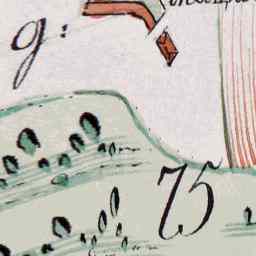 g:
75